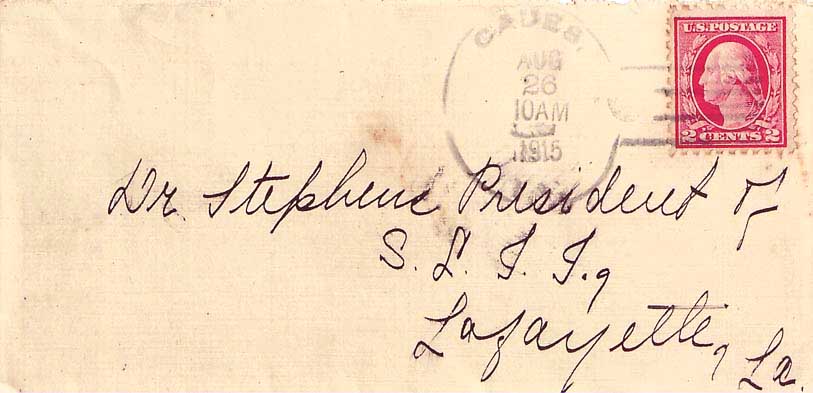 CADES,
AUG
26
10AM
1915
U.S. POSTAGE
2 CENTS 2
Dr. Stephens President of
S. L. I. I.,
Lafayette, La.